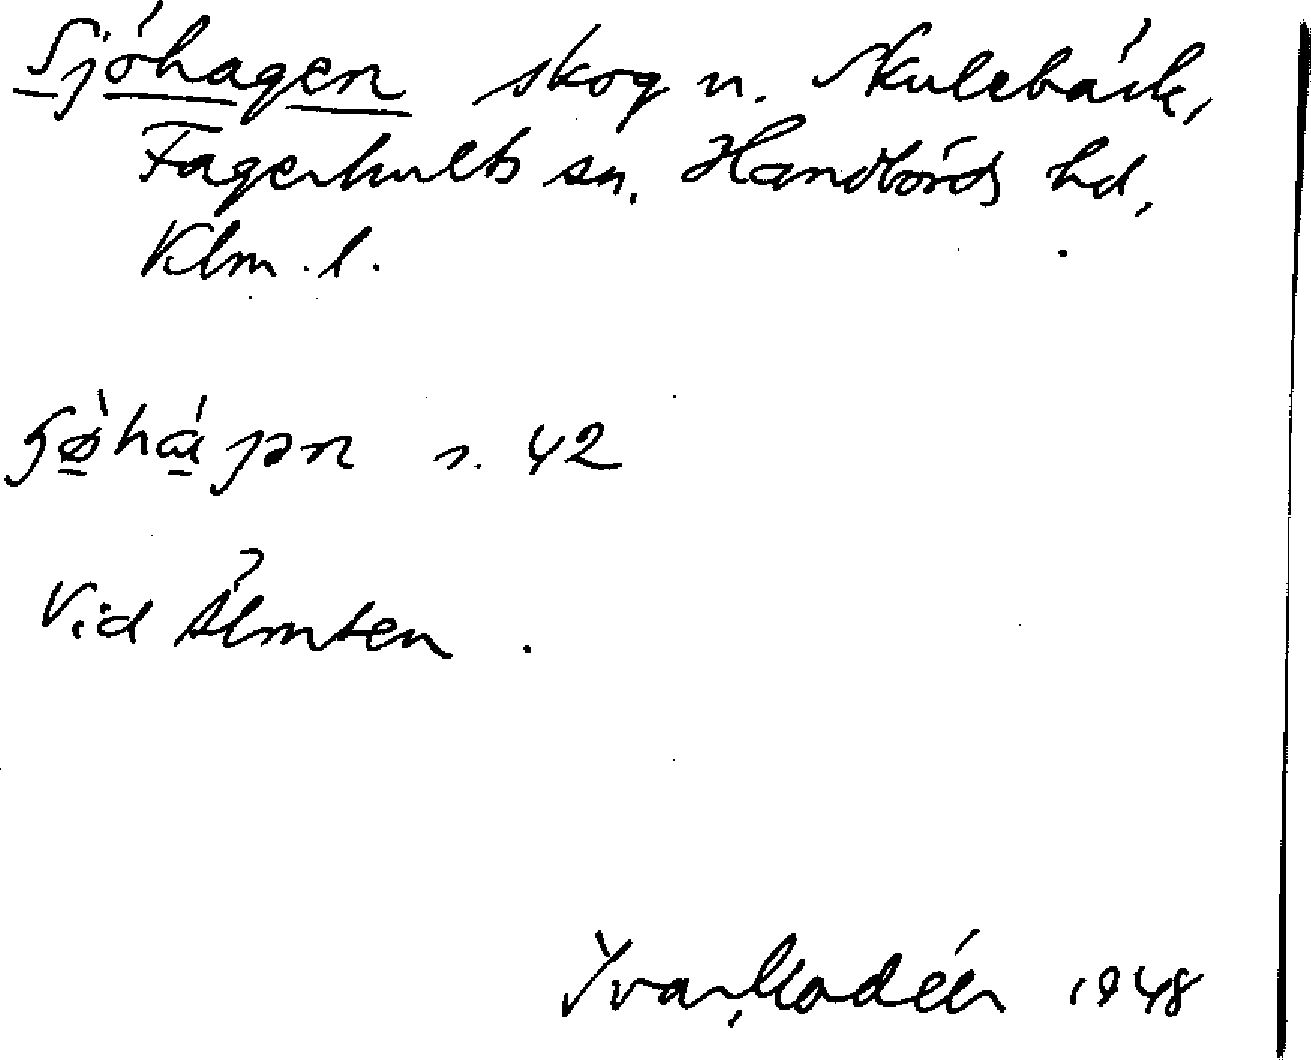 Sjöhagen skog n. Skulebäck,
Fagerhults sn. Handbörds hd,
Klm. l.
s. 42
Vid Älmten.
Ivar Modéer 1948